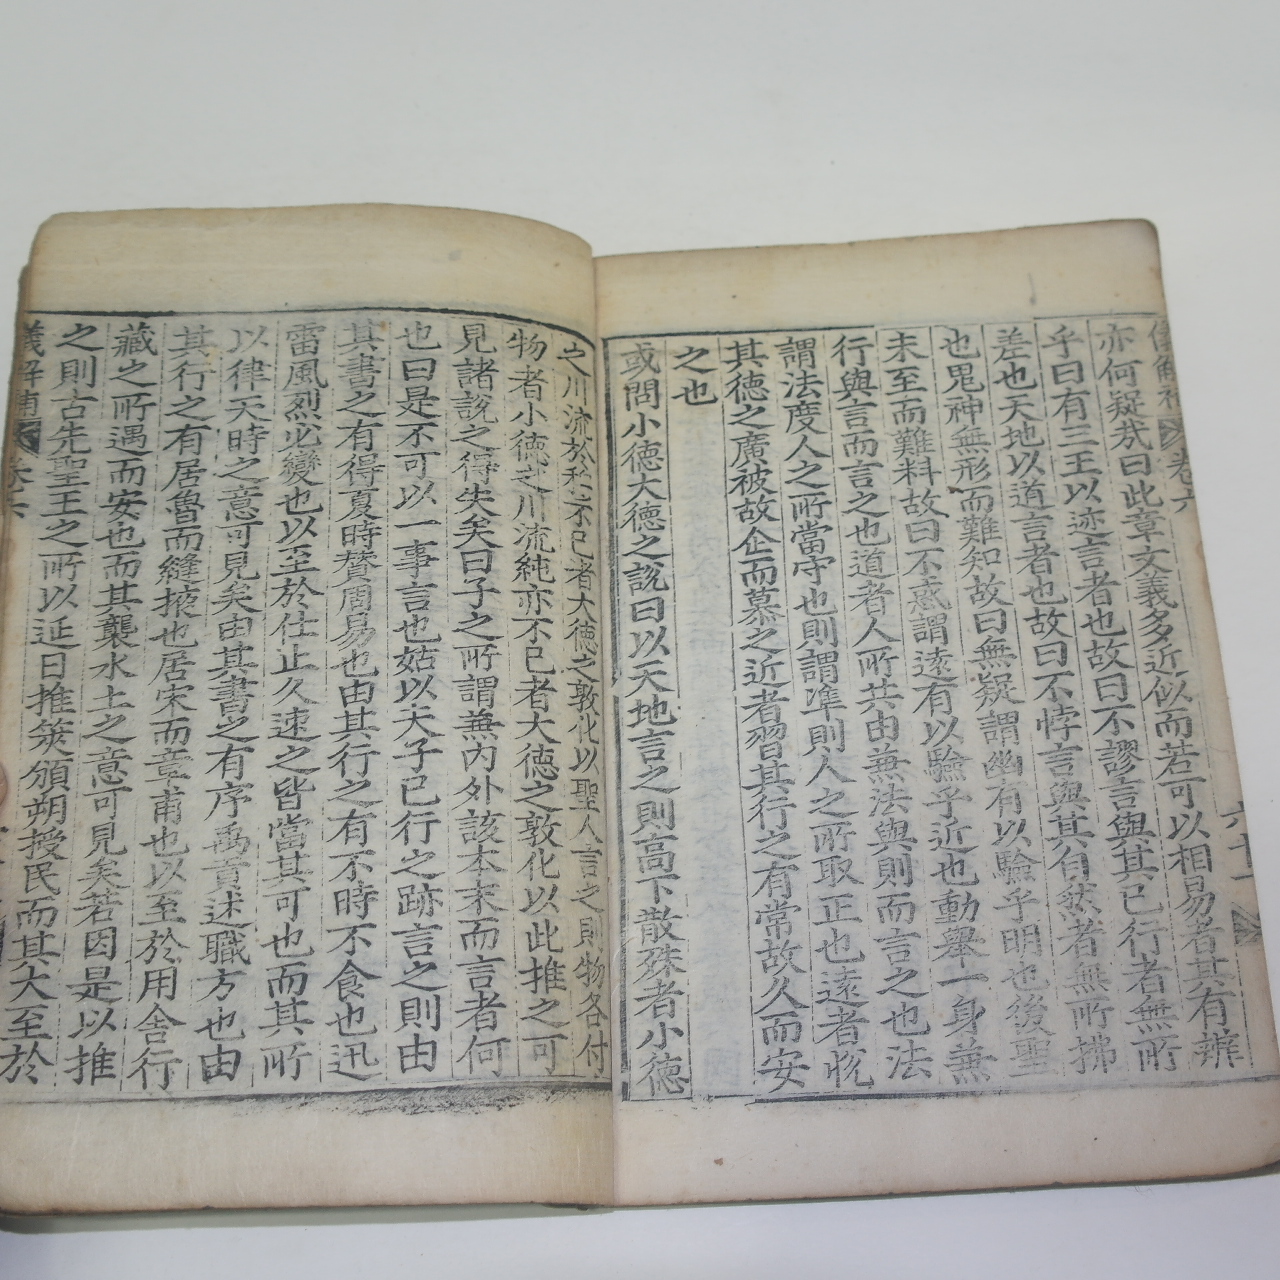 卷六
六十一
亦何疑哉曰此章文義多近似而若可以相易者其有辨
乎曰有三王以迹言者也故曰不謬言與其已行者無所
差也天地以道言者也故曰不悖言與其自然者無所拂
也鬼神無形而難知故曰無疑謂幽有以驗乎明也後聖
未至而難料故曰不惑謂遠有以驗乎近也動舉一身兼
行與言而言之也道者人所共由兼法與則而言之也法
謂法度人之所當守也則謂準則人之所取正也遠者悅
其德之廣被故企而慕之近者習其行之有常故久而安
之也
或問小德大德之說曰以天地言之則高下散殊者小德
之川流於穆不已者大德之敦化以聖人言之則物各付
物者小德之川流純亦不已者大德之敦化以此推之可
見諸說之得失矣曰子之所謂兼內外該本末而言者何
也曰是不可以一事言也姑以夫子已行之跡言之則由
其書之有得夏時贊周易也由其行之有不時不食也迅
雷風烈必變也以至於仕止久速之皆當其可也而其所
以律天時之意可見矣由其書之有序禹貢述職方也由
其行之有居魯而縫掖也居宋而章甫也以至於用舍行
藏之所遇而安也而其襲水土之意可見矣若因是以推
之則古先聖王之所以延日推筴頒朔授民而其大至於
卷六